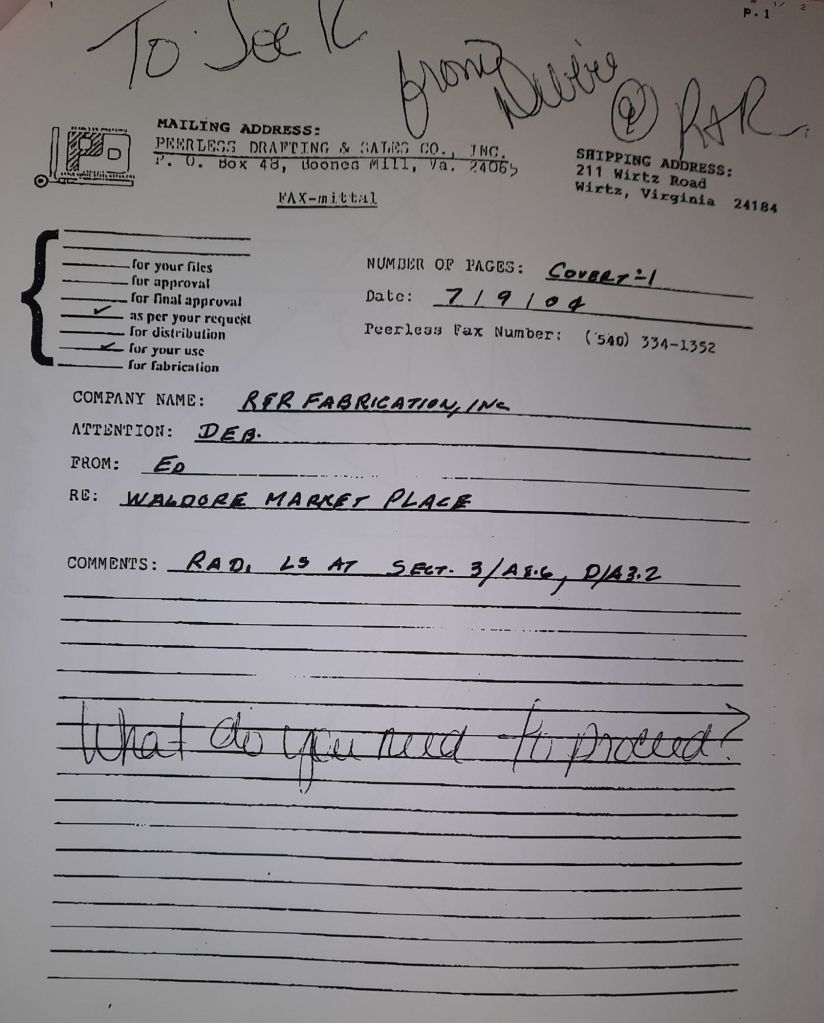 P.1
To Joe R
from Debbie @ R&R
MAILING ADDRESS:
PEERLESS DRAFTING & SALES CO., INC.
P. O. Box 48, Boones Mill, Va. 24065
SHIPPING ADDRESS:
211 Wirtz Road
Wirtz, Virginia 24184
FAX-mittal
for your files
for approval
for final approval
✓ as per your request
for distribution
✓ for your use
for fabrication
NUMBER OF PAGES: COVER+1
Date: 7/9/04
Peerless Fax Number: (540) 334-1352
COMPANY NAME: R&R FABRICATION, INC
ATTENTION: DEB.
FROM: ED
RE: WALDORE MARKET PLACE
COMMENTS: RAD. LS AT SECT. 3/A8.6, D/A3.2
What do you need to proceed?